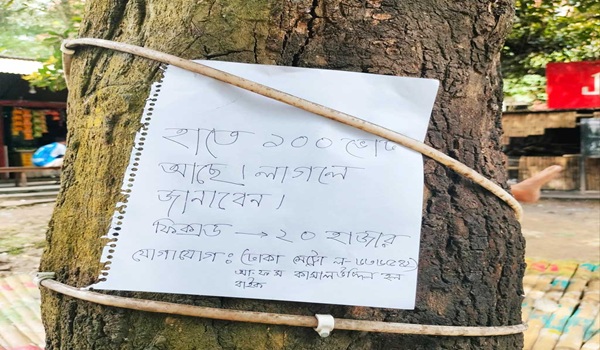 হাতে ১০০ ভোট
আছে। লাগলে
জানাবেন।
ফিক্সড → ২০ হাজার
যোগাযোগ: (ঢাকা মেট্রো ল-
আ.ফ.ম কামালউদ্দিন হল
বাইক